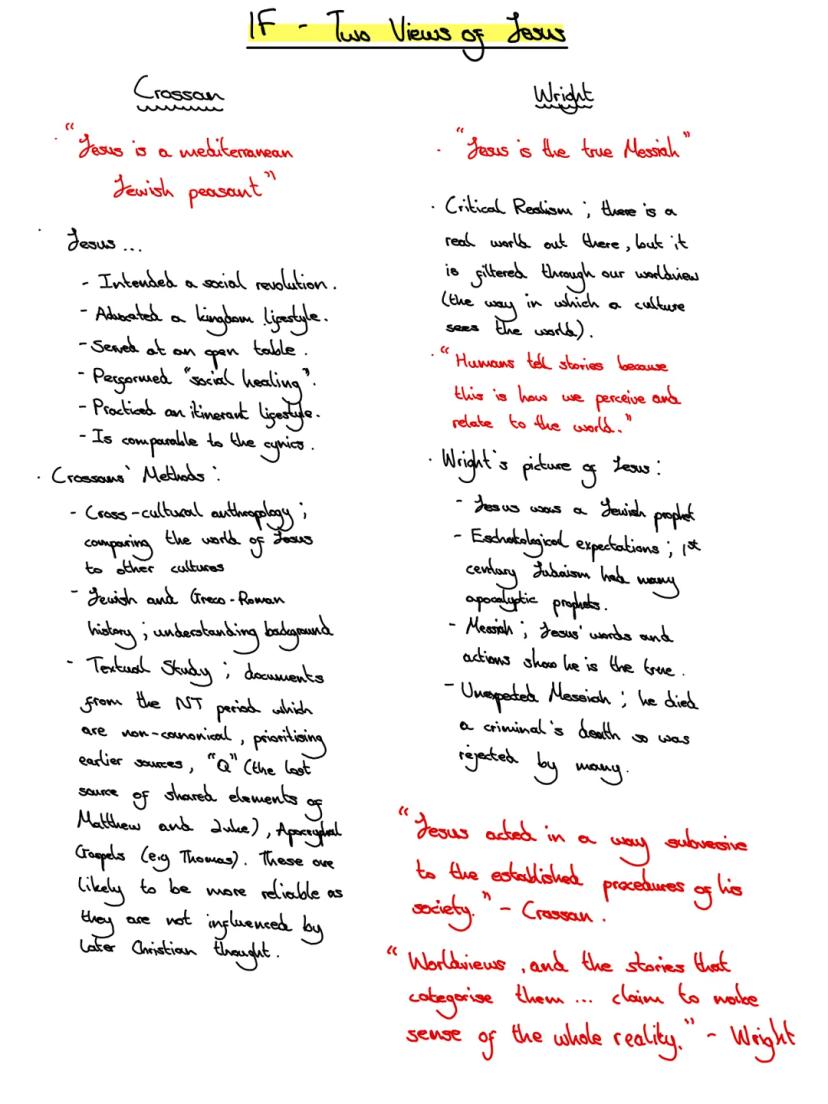 IF - Two Views of Jesus
Crossan
· "Jesus is a mediterranean
Jewish peasant"
· Jesus ...
- Intended a social revolution.
- Advocated a kingdom lifestyle.
- Served at an open table.
- Performed "social healing".
- Practiced an itinerant lifestyle.
- Is comparable to the cynics.
· Crossans' Methods:
- Cross-cultural anthropology;
comparing the world of Jesus
to other cultures
- Jewish and Greco-Roman
history; understanding background
- Textual Study; documents
from the NT period which
are non-canonical, prioritising
earlier sources, "Q" (the lost
source of shared elements of
Matthew and Luke), Apocryphal
Gospels (e.g Thomas). These are
likely to be more reliable as
they are not influenced by
later Christian thought.
Wright
· "Jesus is the true Messiah"
· Critical Realism; there is a
real world out there, but it
is filtered through our worldview
(the way in which a culture
sees the world).
· "Humans tell stories because
this is how we perceive and
relate to the world.."
· Wright's picture of Jesus:
- Jesus was a Jewish prophet
- Eschatological expectations; 1st
century Judaism had many
apocalyptic prophets.
- Messiah; Jesus' words and
actions show he is the true.
- Unexpected Messiah; he died
a criminal's death so was
rejected by many.
"Jesus acted in a way subversive
to the established procedures of his
society." - Crossan.
"Worldviews, and the stories that
categorise them ... claim to make
sense of the whole reality." - Wright